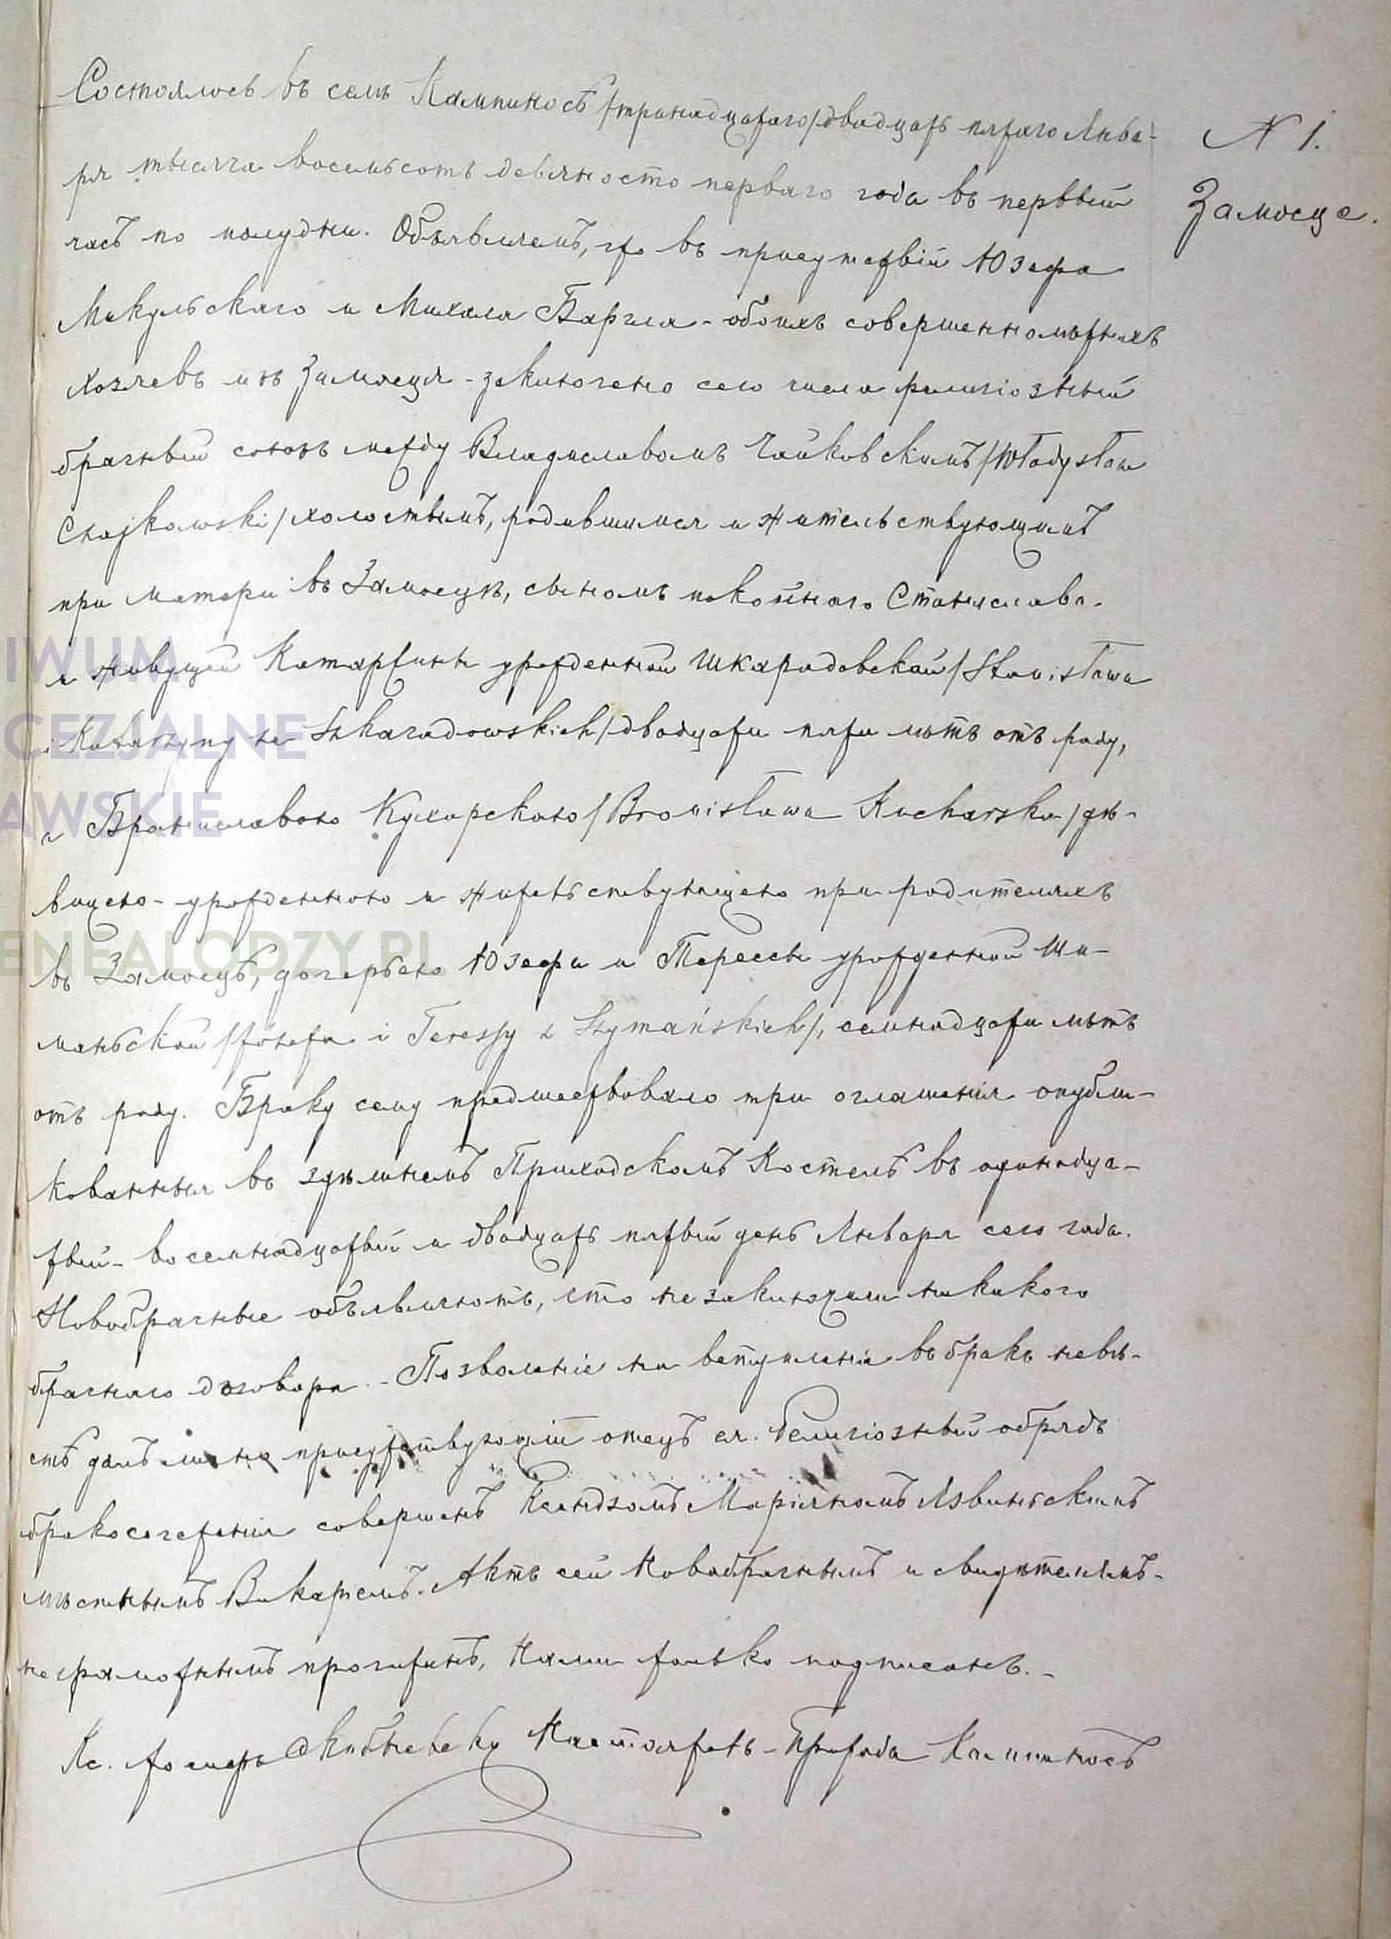 N 1.
Замосце.
Состоялось въ селѣ Кампиносѣ /тринадцатаго/ двадцать пятаго Янва-
ря тысяча восемьсотъ девяносто перваго года въ первый
часъ по полудни. Объявляемъ, что въ присутствiи Юзефа
Микульскаго и Михала Баргла - обоихъ совершеннолѣтнихъ
хозяевъ изъ Замосця - заключено сего числа религiозный
брачный союзъ между Владиславомъ Чайковскимъ /Władysław
Czajkowski/ холостымъ, родившимся и жительствующимъ
при матери въ Замосцѣ, сыномъ покойнаго Станислава
и живущей Катаржины урожденной Шкарадовской /Stanisława
i Katarzyny ze Szkaradowskich/ двадцати пяти лѣтъ отъ роду,
и Брониславою Кухарскою /Bronisława Kucharska/ дѣ-
вицею - урожденною и жительствующею при родителяхъ
въ Замосцѣ, дочерью Юзефа и Терессы урожденной Ши-
маньской /Józefa i Teressy z Szymańskich/, семнадцати лѣтъ
отъ роду. Браку сему предшествовало три оглашенiя опубли-
кованныя въ здѣшнемъ Приходскомъ Костелѣ въ одинадца-
тый - восемнадцатый и двадцать пятый день Января сего года.
Новобрачные объявляютъ, что не заключили никакого
брачнаго договора. - Позволенiе на вступленiе въ бракъ невѣ-
стѣ далъ лично присутствующiй отецъ ея. Религiозный обрядъ
бракосочетанiя совершенъ Ксендзомъ Марiяномъ Язвиньскимъ
мѣстнымъ Викарiемъ. Актъ сей Новобрачнымъ и свидѣтелямъ -
неграмотнымъ прочитанъ, Нами только подписанъ. -
Кс. Настоятель - Прихода Кампиносъ